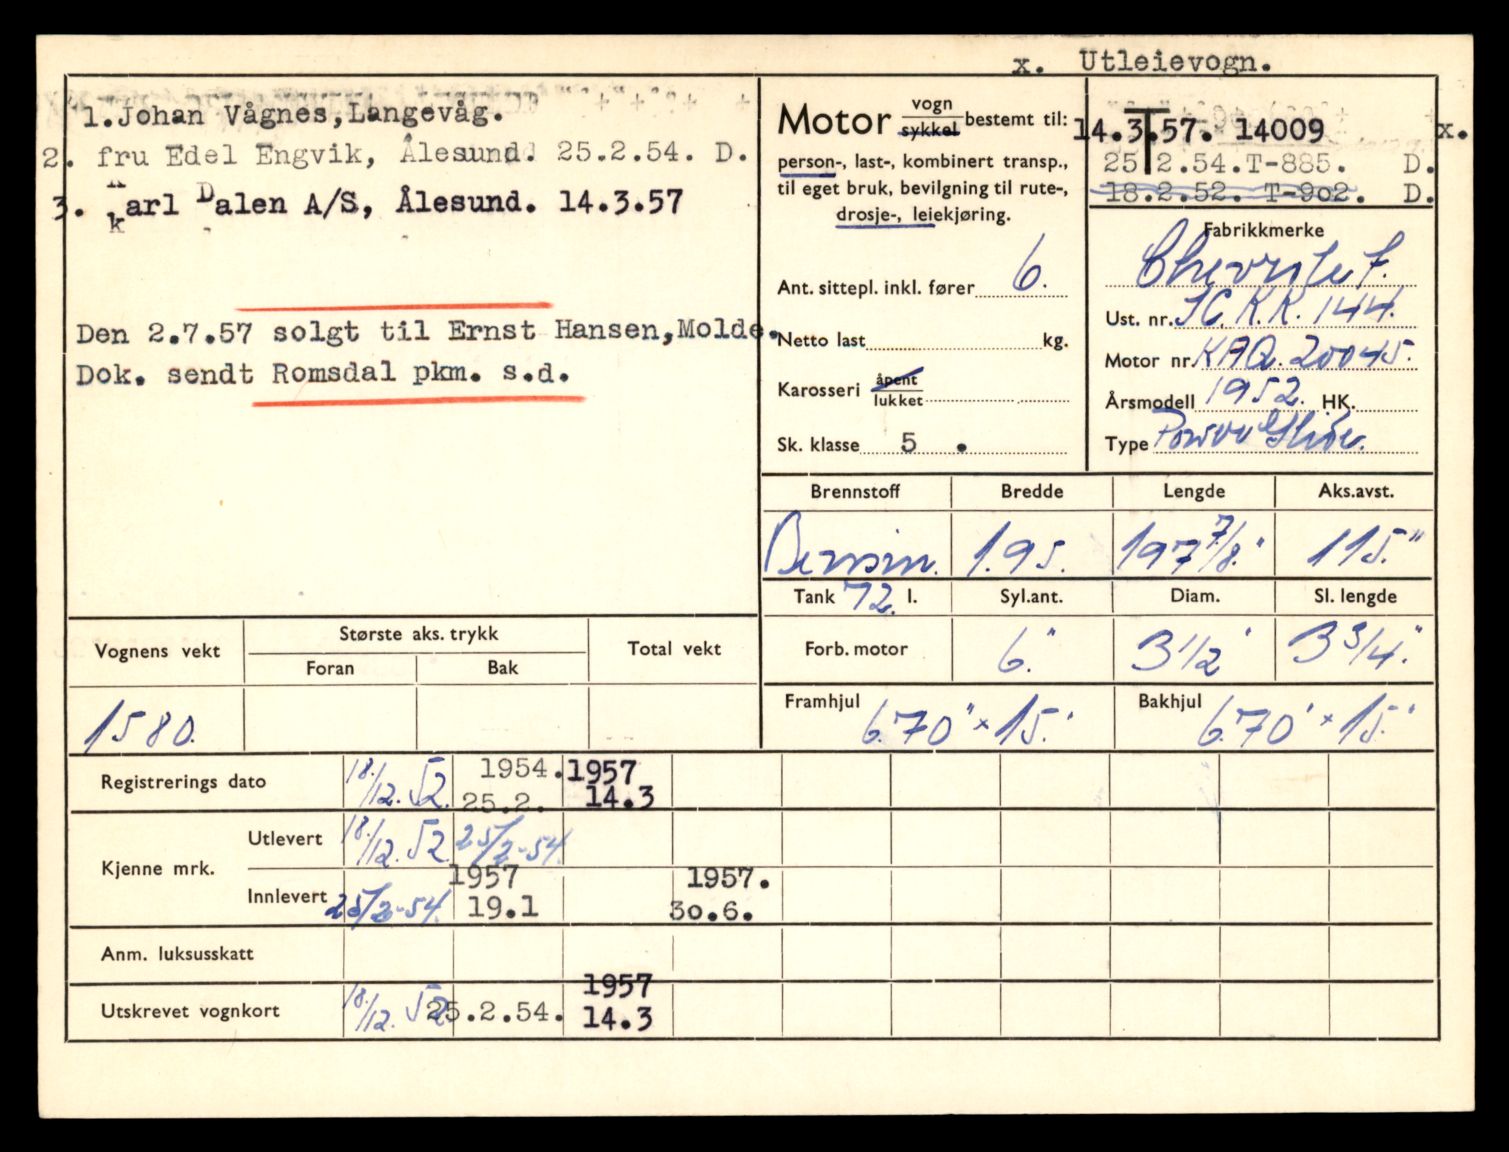 x. Utleievogn.
1.Johan Vågnes,Langevåg.
2. fru Edel Engvik, Ålesund. 25.2.54. D.
3. karl Dalen A/S, Ålesund. 14.3.57
Den 2.7.57 solgt til Ernst Hansen,Molde.
Dok. sendt Romsdal pkm. s.d.
Motor vogn sykkel bestemt til:
person-, last-, kombinert transp.,
til eget bruk, bevilgning til rute-,
drosje-, leiekjøring.
Ant. sittepl. inkl. fører 6.
Netto last kg.
Karosseri åpent lukket
Sk. klasse 5 .
T
14.3.57. 14009 x.
25.2.54.T-885. D.
18.2.52. T-902. D.
Fabrikkmerke
Chevrolet.
Ust. nr. JC.K.K. 144.
Motor nr. KAQ. 20045.
Årsmodell 1952. HK.
Type Power Glide.
Brennstoff Bredde Lengde Aks.avst.
Bensin. 1.95. 197 7/8." 115."
Tank 72. l. Syl.ant. Diam. Sl. lengde
Forb. motor 6." 3 1/2' 3 3/4."
Framhjul 6.70" × 15.' Bakhjul 6.70' × 15.'
Vognens vekt Største aks. trykk Total vekt
Foran Bak
1580.
Registrerings dato 18./12. 52. 1954. 25.2. 1957 14.3
Kjenne mrk. Utlevert 18./12. 52. 25/2-54.
Innlevert 25/2-54. 1957 19.1 1957. 30.6.
Anm. luksusskatt
Utskrevet vognkort 18./12. 52 25.2.54. 1957 14.3